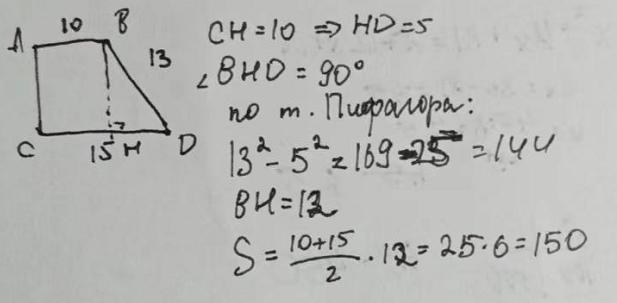 A 10 B
13
C 15 H D
CH = 10 ⇒ HD = 5
∠BHD = 90°
по т. Пифагора:
13² - 5² = 169 - 25 = 144
BH = 12
S = (10+15)/2 · 12 = 25·6 = 150